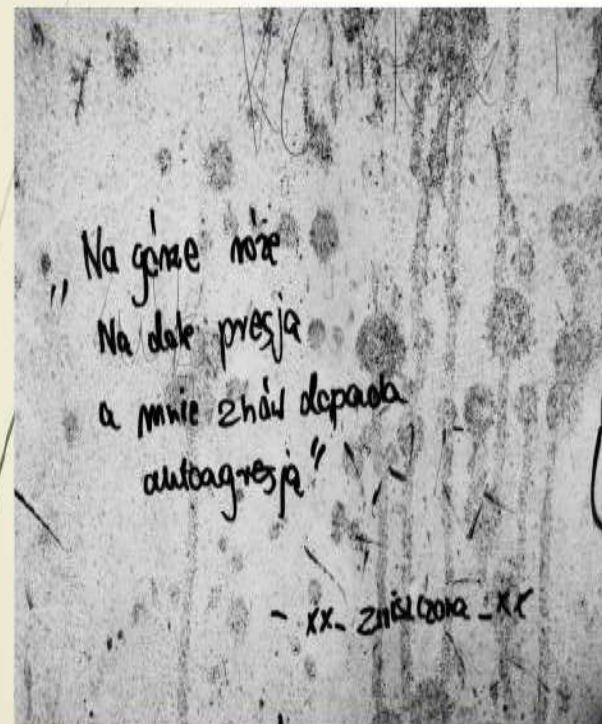 „Na górze róże
Na dole presja
a mnie znów dopada
autoagresja”
- xx_zniszczona_xx